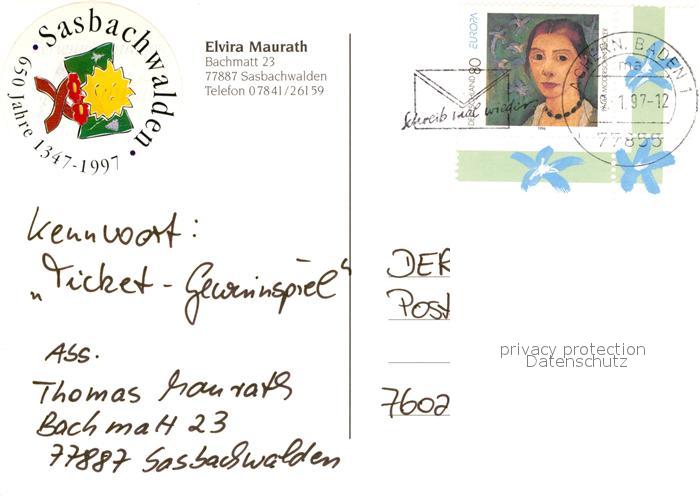 Sasbachwalden
650 Jahre 1347-1997
Elvira Maurath
Bachmatt 23
77887 Sasbachwalden
Telefon 07841/26159
EUROPA
DEUTSCHLAND 80
1996
Schreib mal wieder
ACHERN, BADEN 1
ma
1.97-12
77855
Kennwort:
„Ticket - Gewinnspiel“
Abs.
Thomas Maurath
Bachmatt 23
77887 Sasbachwalden
DER
Post
7602
privacy protection
Datenschutz